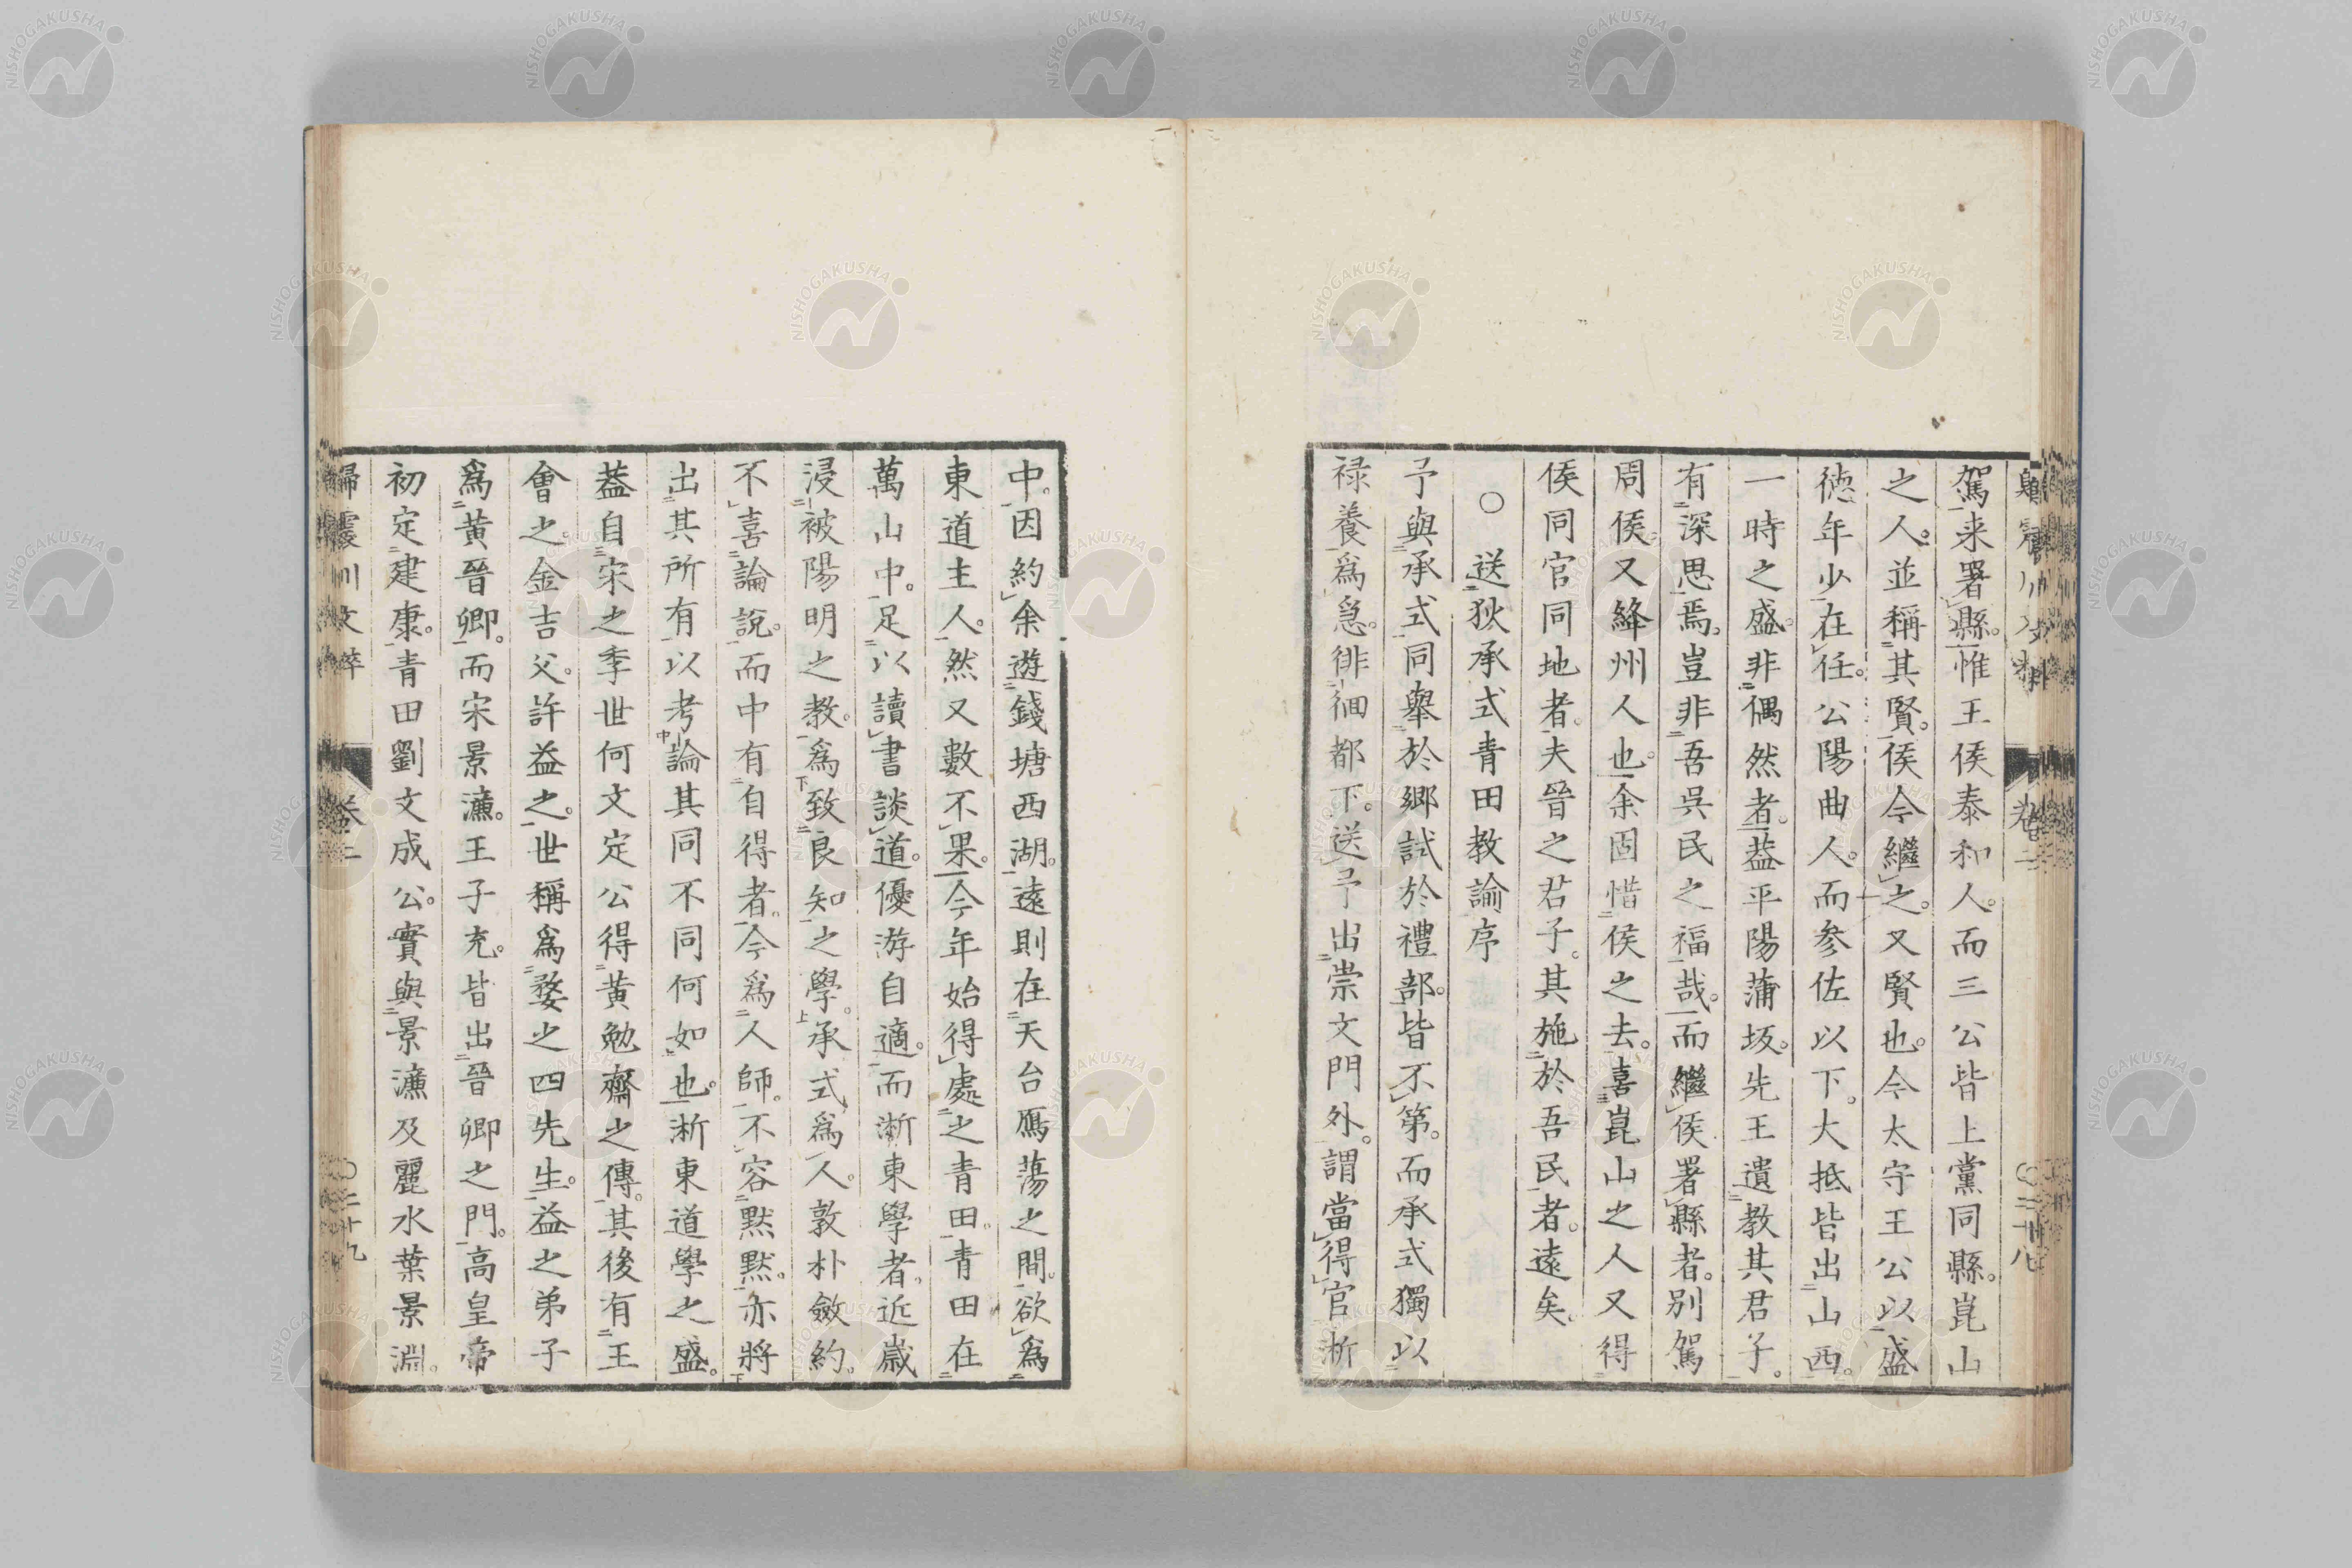 駕来署縣。惟王侯泰和人。而三公皆上黨同縣。崑山
之人。並稱其賢。侯今繼之。又賢也。今太守王公以盛
徳年少在任。公陽曲人。而参佐以下。大抵皆出山西。
一時之盛。非偶然者。葢平陽蒲坂。先王遺教其君子。
有深思焉。豈非吾吳民之福哉。而繼侯署縣者。別駕
周侯。又絳州人也。余固惜侯之去。喜崑山之人又得
侯同官同地者。夫晉之君子。其施於吾民者。遠矣。
○送狄承式青田教諭序
予與承式同舉於鄉試於禮部。皆不第。而承式獨以
禄養爲急。徘徊都下。送予出崇文門外。謂當得官浙
中。因約余遊錢塘西湖。遠則在天台鴈蕩之間。欲爲
東道主人。然又數不果。今年始得處之青田。青田在
萬山中。足以讀書談道。優游自適。而浙東學者。近歲
浸被陽明之教。爲致良知之學。承式爲人。敦朴斂約。
不喜論說。而中有自得者。今爲人師。不容黙黙。亦將
出其所有以考論其同不同何如也。浙東道學之盛。
葢自宋之季世何文定公得黄勉齋之傳。其後有王
會之。金吉父。許益之。世稱爲婺之四先生。益之弟子
爲黄晉卿。而宋景濂。王子充。皆出晉卿之門。高皇帝
初定建康。青田劉文成公。實與景濂及麗水葉景淵。
歸震川文粹
卷二
○二十九
卷二